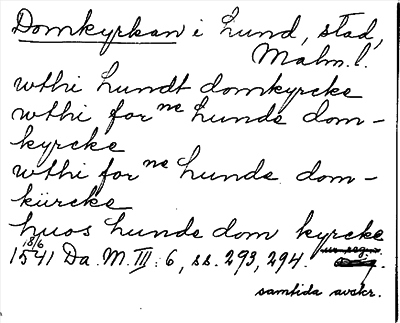 Domkyrkan i Lund, stad,
Malm. l.
wthi Lundt domkyrcke
wthi for ne Lunde dom-
kyrcke
wthi for ne Lunde dom-
kürcke
huos Lunde dom kyrcke
18/6
1541 Da. M. III: 6, ss. 293, 294.
samtida avskr.